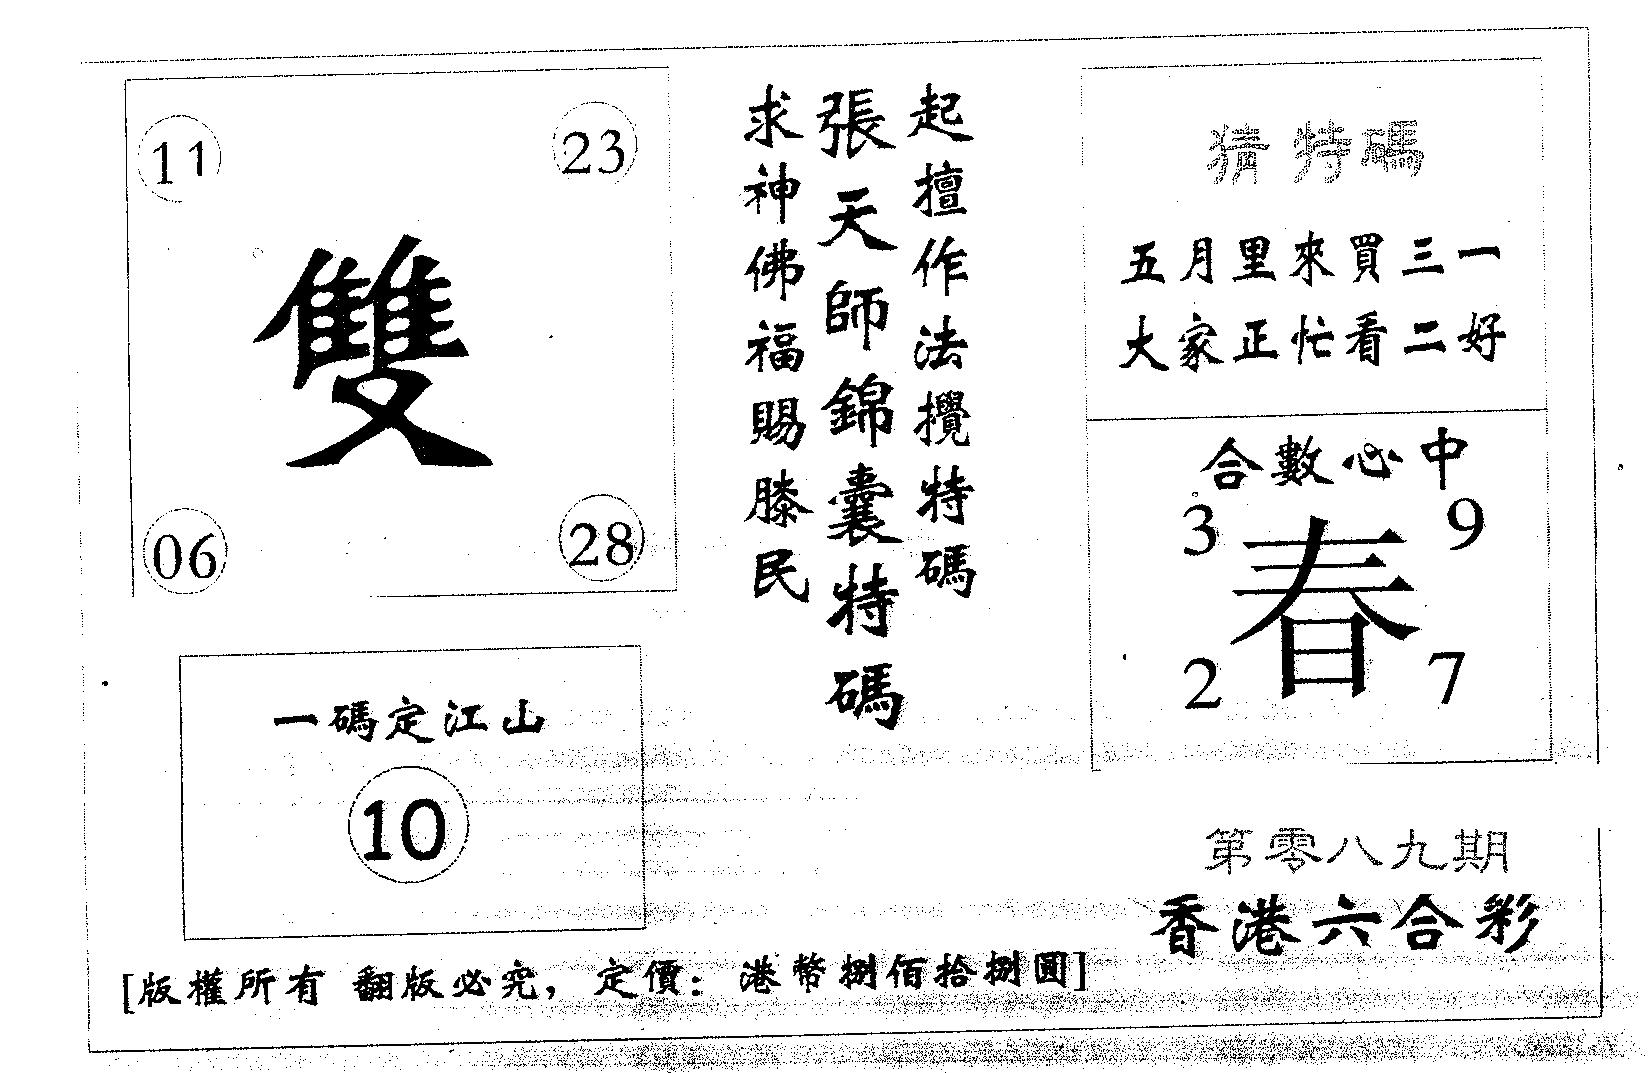 11
23
雙
06
28
一碼定江山
10
起擅作法攪特碼
張天師錦囊特碼
求神佛福賜膝民
猜特碼
五月里來買三一
大家正忙看二好
合數心中
3
9
春
2
7
第零八九期
香港六合彩
[版權所有 翻版必究，定價：港幣捌佰拾捌圓]